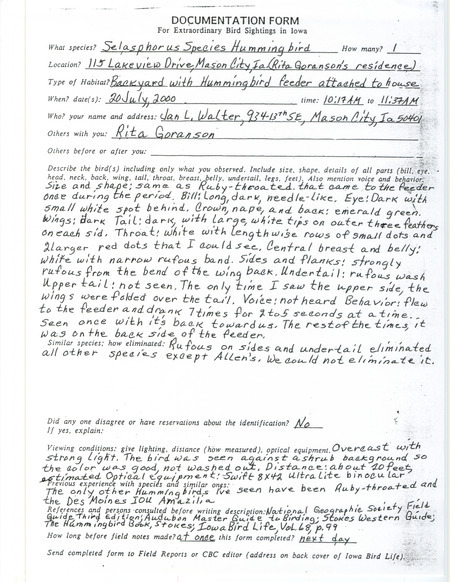 DOCUMENTATION FORM
For Extraordinary Bird Sightings in Iowa
What species? Selasphorus Species Hummingbird How many? 1
Location? 115 Lakeview Drive, Mason City, Ia (Rita Goranson's residence)
Type of Habitat? Backyard with Hummingbird feeder attached to house
When? date(s): 20 July, 2000 time: 10:17AM to 11:37AM
Who? your name and address: Jan L. Walter, 934-13th SE, Mason City, Ia 50401
Others with you: Rita Goranson
Others before or after you:
Describe the bird(s) including only what you observed. Include size, shape, details of all parts (bill, eye,
head, neck, back, wing, tail, throat, breast, belly, undertail, legs, feet). Also mention voice and behavior.
Size and shape: same as Ruby-throated that came to the feeder
once during the period. Bill: Long, dark, needle-like. Eye: Dark with
small white spot behind. Crown, nape, and back: emerald green.
Wings: dark Tail: dark, with large, white tips on outer three feathers
on each side. Throat: white with lengthwise rows of small dots and
2 larger red dots that I could see. Central breast and belly:
white with narrow rufous band. Sides and flanks: strongly
rufous from the bend of the wing back. Undertail: rufous wash
Upper tail: not seen. The only time I saw the upper side, the
wings were folded over the tail. Voice: not heard Behavior: flew
to the feeder and drank 7 times for 2 to 5 seconds at a time..
Seen once with it's back toward us. The rest of the times, it
was on the back side of the feeder.
Similar species: how eliminated: Rufous on sides and undertail eliminated
all other species except Allen's. We could not eliminate it.
Did any one disagree or have reservations about the identification? No
If yes, explain:
Viewing conditions: give lighting, distance (how measured), optical equipment. Overcast with
strong light. The bird was seen against a shrub background so
the color was good, not washed out. Distance: about 20 feet,
estimated Optical equipment: Swift 8X42 Ultralite binocular
Previous experience with species and similar ones: Ruby-throated and
The only other Hummingbirds I've seen have been
the Des Moines IOU Amazilia
References and persons consulted before writing description: National Geographic Society Field
Guide Third Edition; Audubon Master Guide to Birding; Stokes Western Guide;
The Hummingbird Book, Stokes; Iowa Bird Life, Vol. 68, p.99
How long before field notes made? at once this form completed? next day
Send completed form to Field Reports or CBC editor (address on back cover of Iowa Bird Life).